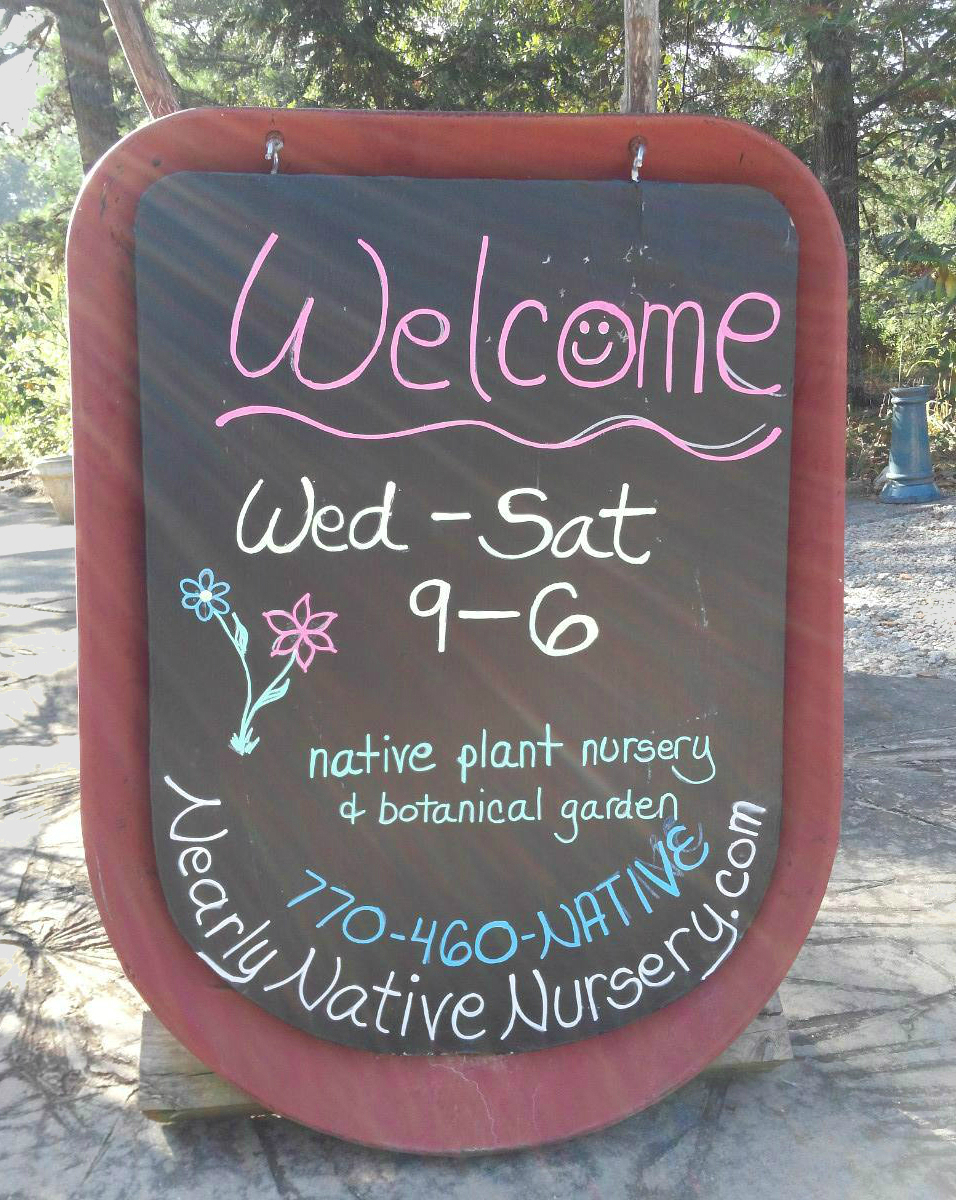 Welcome
Wed - Sat
9-6
native plant nursery
& botanical garden
770-460-NATIVE
Nearly Native Nursery.com